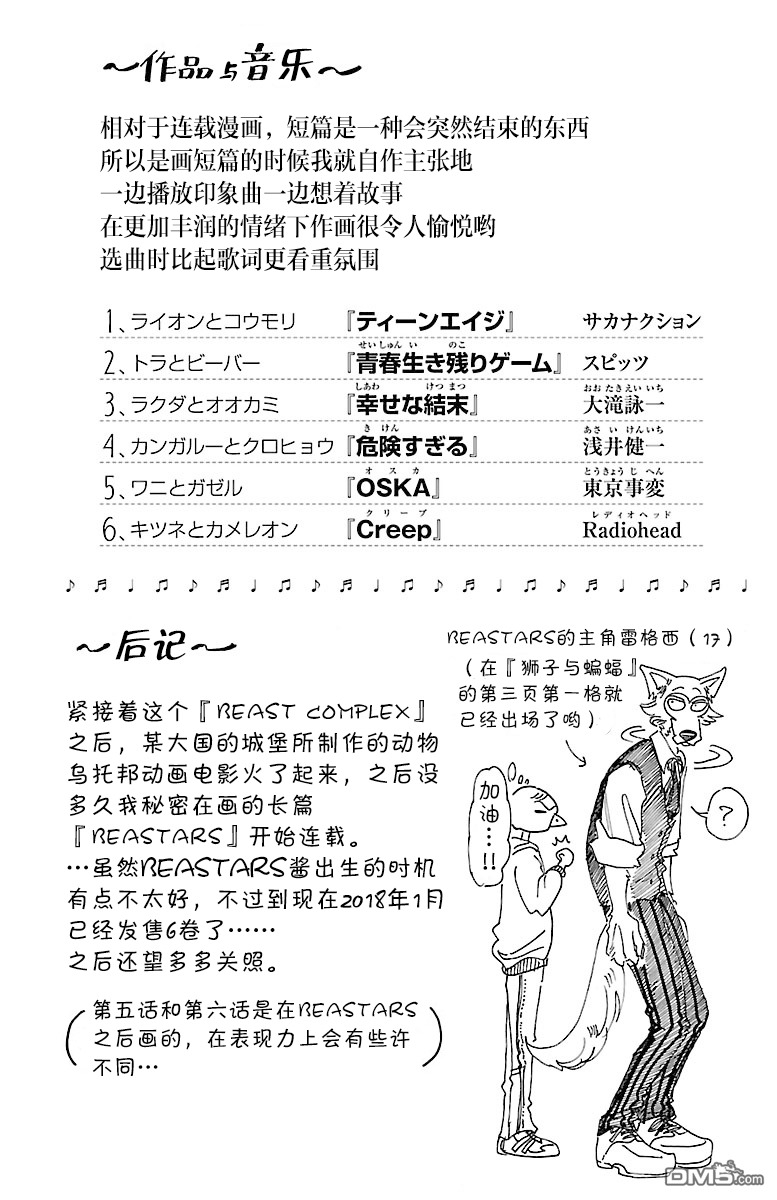 ~作品与音乐~
相对于连载漫画，短篇是一种会突然结束的东西
所以是画短篇的时候我就自作主张地
一边播放印象曲一边想着故事
在更加丰润的情绪下作画很令人愉悦哟
选曲时比起歌词更看重氛围
1、ライオンとコウモリ 『ティーンエイジ』 サカナクション
せいしゅん い のこ
2、トラとビーバー 『青春生き残りゲーム』 スピッツ
しあわ けつ まつ おお たき えい いち
3、ラクダとオオカミ 『幸せな結末』 大滝詠一
き けん あさ い けん いち
4、カンガルーとクロヒョウ 『危険すぎる』 浅井健一
オ ス カ とうきょう じ へん
5、ワニとガゼル 『OSKA』 東京事変
クリープ レディオヘッド
6、キツネとカメレオン 『Creep』 Radiohead
~后记~
紧接着这个『BEAST COMPLEX』
之后，某大国的城堡所制作的动物
乌托邦动画电影火了起来，之后没
多久我秘密在画的长篇
『BEASTARS』开始连载。
…虽然BEASTARS酱出生的时机
有点不太好，不过到现在2018年1月
已经发售6卷了……
之后还望多多关照。
（第五话和第六话是在BEASTARS
之后画的，在表现力上会有些许
不同…）
BEASTARS的主角雷格西（17）
（在『狮子与蝙蝠』
的第三页第一格就
已经出场了哟）
加油…!!
?
DM5.com